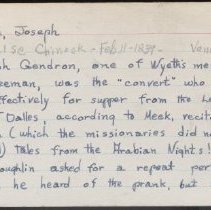 , Joseph
Chinook - Feb. 11 - 1839 -
h Gendron, one of Wyeth's me
eeman, was the "convert" who
ffectively for supper from the Le
Dalles, according to Meek, recit
(which the missionaries did no
) tales from the Arabian Nights!
oughlin asked for a repeat per
he heard of the prank, but